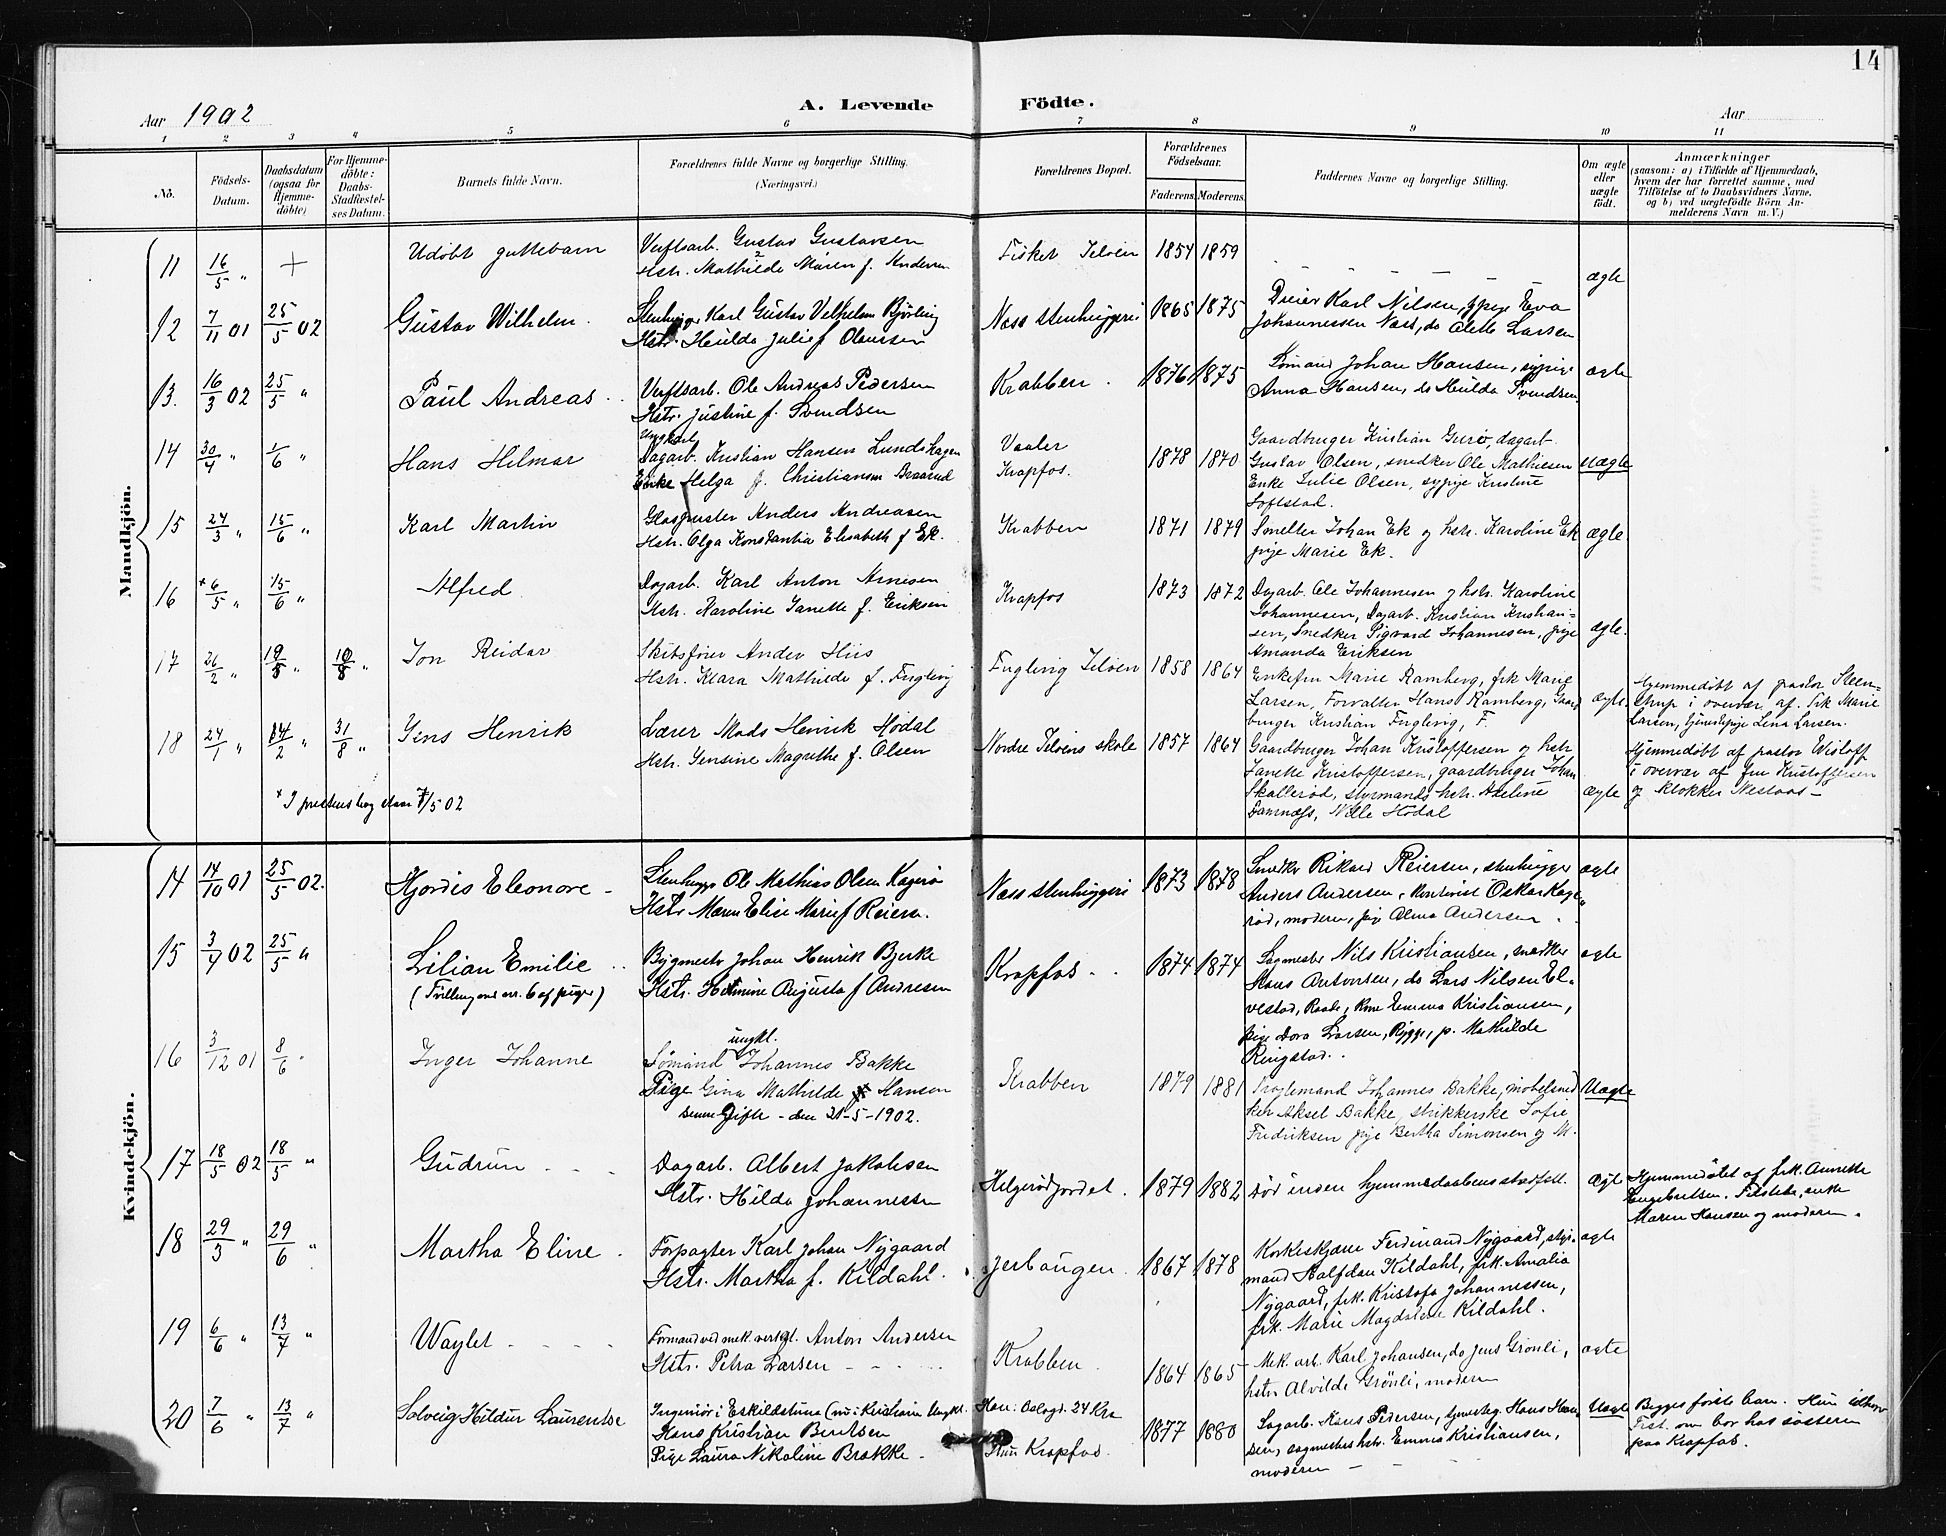 14
Aar 1902
A. Levende Födte.
Aar
1 2 3 4 5 6 7 8 9 10 11
No.
Födsels-Datum.
Daabsdatum (ogsaa for Hjemme-döbte)
For Hjemme-döbte: Daabs-Stadfæstel-ses Datum.
Barnets fulde Navn.
Forældrenes fulde Navne og borgerlige Stilling. (Næringsvei.)
Forældrenes Bopæl.
Forældrenes Födselsaar.
Faderens. Moderens.
Faddernes Navne og borgerlige Stilling.
Om ægte eller uægte födt.
Anmærkninger
(saasom: a) i Tilfælde af Hjemmedaab,
hvem der har forrettet samme, med
Tilföielse af to Daabsvidners Navne,
og b) ved uægtefödte Börn An-
melderens Navn m. V.)
Mandkjön.
11 16/5 " + Udöbt guttebarn
Verftsarb. Gustav Gustavsen
Hstr. Mathilde Maren f. Andersen
Fisket Jeløen 1854 1859 ægte
12 7/11 01 25/5 02 Gustav Wilhelm.
Stenhugger Karl Gustav Vilhelm Björling
Hstr. Hulda Julie f Olaussen
Næss stenhuggeri 1865 1875
Dreier Karl Nilsen, pige Eva
Johannessen Næss, do Alette Larsen
13. 16/3 02 25/5 " Paul Andreas
Verftsarb. Ole Andreas Pedersen
Hstr. Justine f. Svendsen
Krabben. 1876 1875
Sömand Johan Hansen, sypige
Anna Hansen, do Hulda Svendsen
ægte
14 30/4 " 1/6 " Hans Hilmar
Ungkarl
Dagarb. Kristian Hansen Lundshagen
Enke Helga f. Christiansen Braarud
Vaaler
Krapfos. 1878 1870
Gaardbruger Kristian Gurö, dagarb.
Gustav Olsen, snedker Ole Mathiesen
Enke Julie Olsen, sypige Kristine
Softstad.
uægte
15 24/3 " 15/6 " Karl Martin
Glaspuster Anders Andreasen
Hstr. Olga Konstantia Elisabeth f Ek.
Krabben 1871 1879
Smelter Johan Ek og hstr. Karoline Ek
pige Marie Ek.
ægte.
16 × 6/5 " 15/6 " Alfred
Dagarb. Karl Anton Arnesen
Hstr. Karoline Janette f. Eriksen
Krapfos 1873 1872
Dagarb. Ole Johannesen og hstr. Karoline
Johannesen, Dagarb. Kristian Kristian-
sen, Snedker Sigvard Johannesen, pige
Amanda Eriksen
ægte.
17 26/2 " 10/8 " Jon Reidar
Skibsfører Hiis
Hstr. Klara Mathilde f. Fuglevig
Fuglevig Jeløen 1858 1864
Enkefru Marie Ramberg, frk Marie
Larsen, Forvalter Hans Ramberg, Gaard
bruger Kristian Fuglevig, F.
ægte.
Hjemmedøbt af pastor Steen-
strup i overvær af frk Marie
Larsen, tjenestepige Lena Larsen.
18 24/1 " 31/8 " Jens Henrik
Lærer Mads Henrik Hodal
Hstr. Jensine Magrethe f. Olsen
Nordre Jeløens skole 1857 1864
Gaardbruger Johan Kristoffersen og hstr
Janette Kristoffersen, gaardbruger Johan
Skallerød, styrmands hstr. Adeline
Nille Hodal
ægte
Hjemmedøbt af pastor Wisløff
i overvær af fru Kristoffersen
og klokker Nestaas –
× I prestens bog staar 7/5 02
Kvindekjön.
14 14/10 01 25/5 02. Hjordis Eleonore –
Stenhugger Ole Mathias Olsen Kageröd
Hstr Maren Elise Marie f Reiers.
Næss stenhuggeri 1873 1878
Snedker Rikard Reiersen, stenhugger
Anders Andersen, Oskar Kage-
röd, moderen, pige Alma Andersen.
ægte
15 3/4 02 25/5 " Lilian Emilie
(Tvilling med nr. 6 af piger)
Bygmestr Johan Henrik Bjerke
Hstr. Hermine Augusta f Andresen
Krapfos 1874 1874
Sagmester Nils Kristiansen, snedker
Hans do Lars Nilsen El-
vestad, Raade, Kone Emma Kristiansen,
pige Dora Larsen, Rygge, p. Mathilde
Ringstad.
ægte
16 3/12 01 8/6 " Inger Johanne
ungkl.
Sømand Johannes Bakke
Pige Gina Mathilde Hansen
Senere Gifte – den 21-5-1902.
Krabben 1879 1881
Johannes Bakke, møbelsned
ker Aksel Bakke, strikkerske Sofie
Fredriksen pige Bertha Simonsen og M.
Uægte
17 18/5 02 18/5 " Gudrun
Dagarb. Albert Jakobsen
Hstr. Hilda Johannessen
Helgerödjordet. 1879 1882
Död inden hjemmedaabens stadfæst.
ægte
Hjemmedöbt af frk. Annette
Engebretsen. Tilstede, enke
Maren Hansen og moderen.
18 29/3 " 29/6 " Martha Eline
Forpagter Karl Johan Nygaard
Hstr. Martha f. Kildahl.
Jerbaugen. 1867 1878
Korkeskjærer Ferdinand Nygaard, styr-
mand Halfdan Kildahl, frk. Amalia
Nygaard, frk. Kristofa Johannessen,
frk. Marie Magdalene Kildahl.
ægte
19 6/6 13/7 " Waylet
Formand ved mek. verkst. Anton Andersen
Hstr. Petra Larsen
Krabben. 1864 1865
Mek. arb. Karl Johansen, do Jens Grönli,
hstr Alvilde Grönli, moderen
ægte
20 7/6 " 13/7 " Solveig Hildur Laurentse
Ingeniör i Eskildstuna (nu i Kristiania Ungkl.
Hans Kristian Berntsen
Pige Laura Nikoline Brakke –
Han: Oslogd. 24 Kra
Hun Krapfos. 1877 1880
Sagarb. Hans Pedersen, Hans Han-
sen, sagmesters hstr. Emma Kristiansen,
moderen
Uægte
Begges förste barn. Hun
Fredrikst. men bor hos søsteren
paa Krapfos.